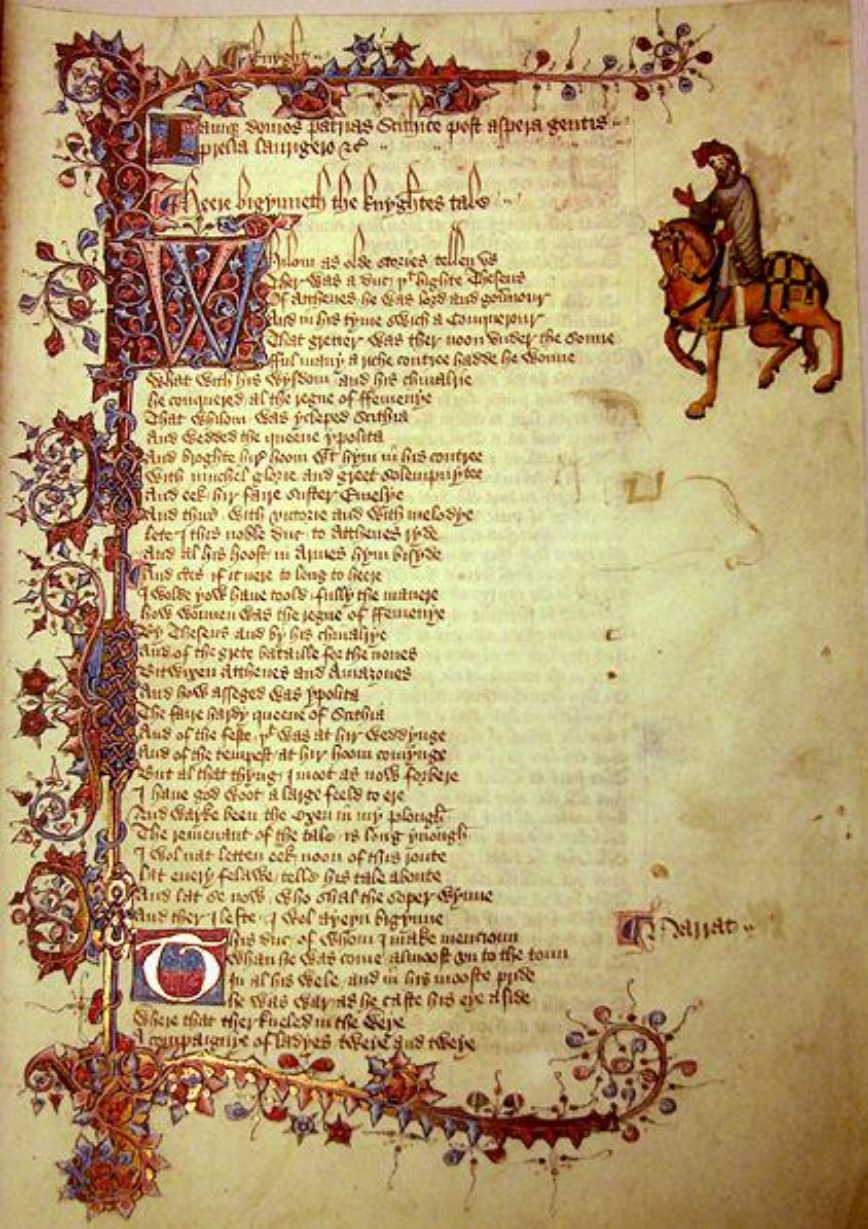 Knyght
Iamque domos patrias Scithice post aspera gentis
prelia laurigero &c
Heere bigynneth the knyghtes tale
Whilom as olde stories tellen us
Ther was a duc þt highte Theseus
Of Atthenes he was lord and gouernour
And in his tyme swich a Conquerour
That gretter was ther noon vnder the sonne
fful many a riche contree hadde he wonne
What with his wysdom and his chiualrie
he conquered al the regne of ffemenye
That whilom was ycleped Scithia
And wedded the queene ypolita
And broghte hire hoom wt hym in his contree
With muchel glorie and greet solempnytee
And eek hir faire suster Emelye
And thus with victorie and with melodye
lete I this noble duc to Atthenes ryde
And al his hoost in Armes hym bisyde
And certes if it nere to long to heere
I wolde yow haue toold fully the manere
how wonnen was the regne of ffemenye
By Theseus and by his chiualrye
And of the grete bataille for the nones
Bitwixen Atthenes and Amazones
And how asseged was ypolita
The faire hardy queene of Scithia
And of the feste þt was at hir weddynge
And of the tempest at hir hoom comynge
But al that thyng I moot as now forbere
I haue god woot a large feeld to ere
And wayke been the Oxen in my plough
The remenant of the tale is long ynough
I wol nat letten eek noon of this route
lat euery felawe telle his tale aboute
And lat se now who shal the soper wynne
And ther I lefte I wol ayeyn bigynne
This duc of whom I make mencioun
Narrat
Whan he was come almoost vn to the toun
In al his wele and in his mooste pride
he was war as he caste his eye aside
Where that ther kneled in the weye
A compaignye of ladyes tweye and tweye